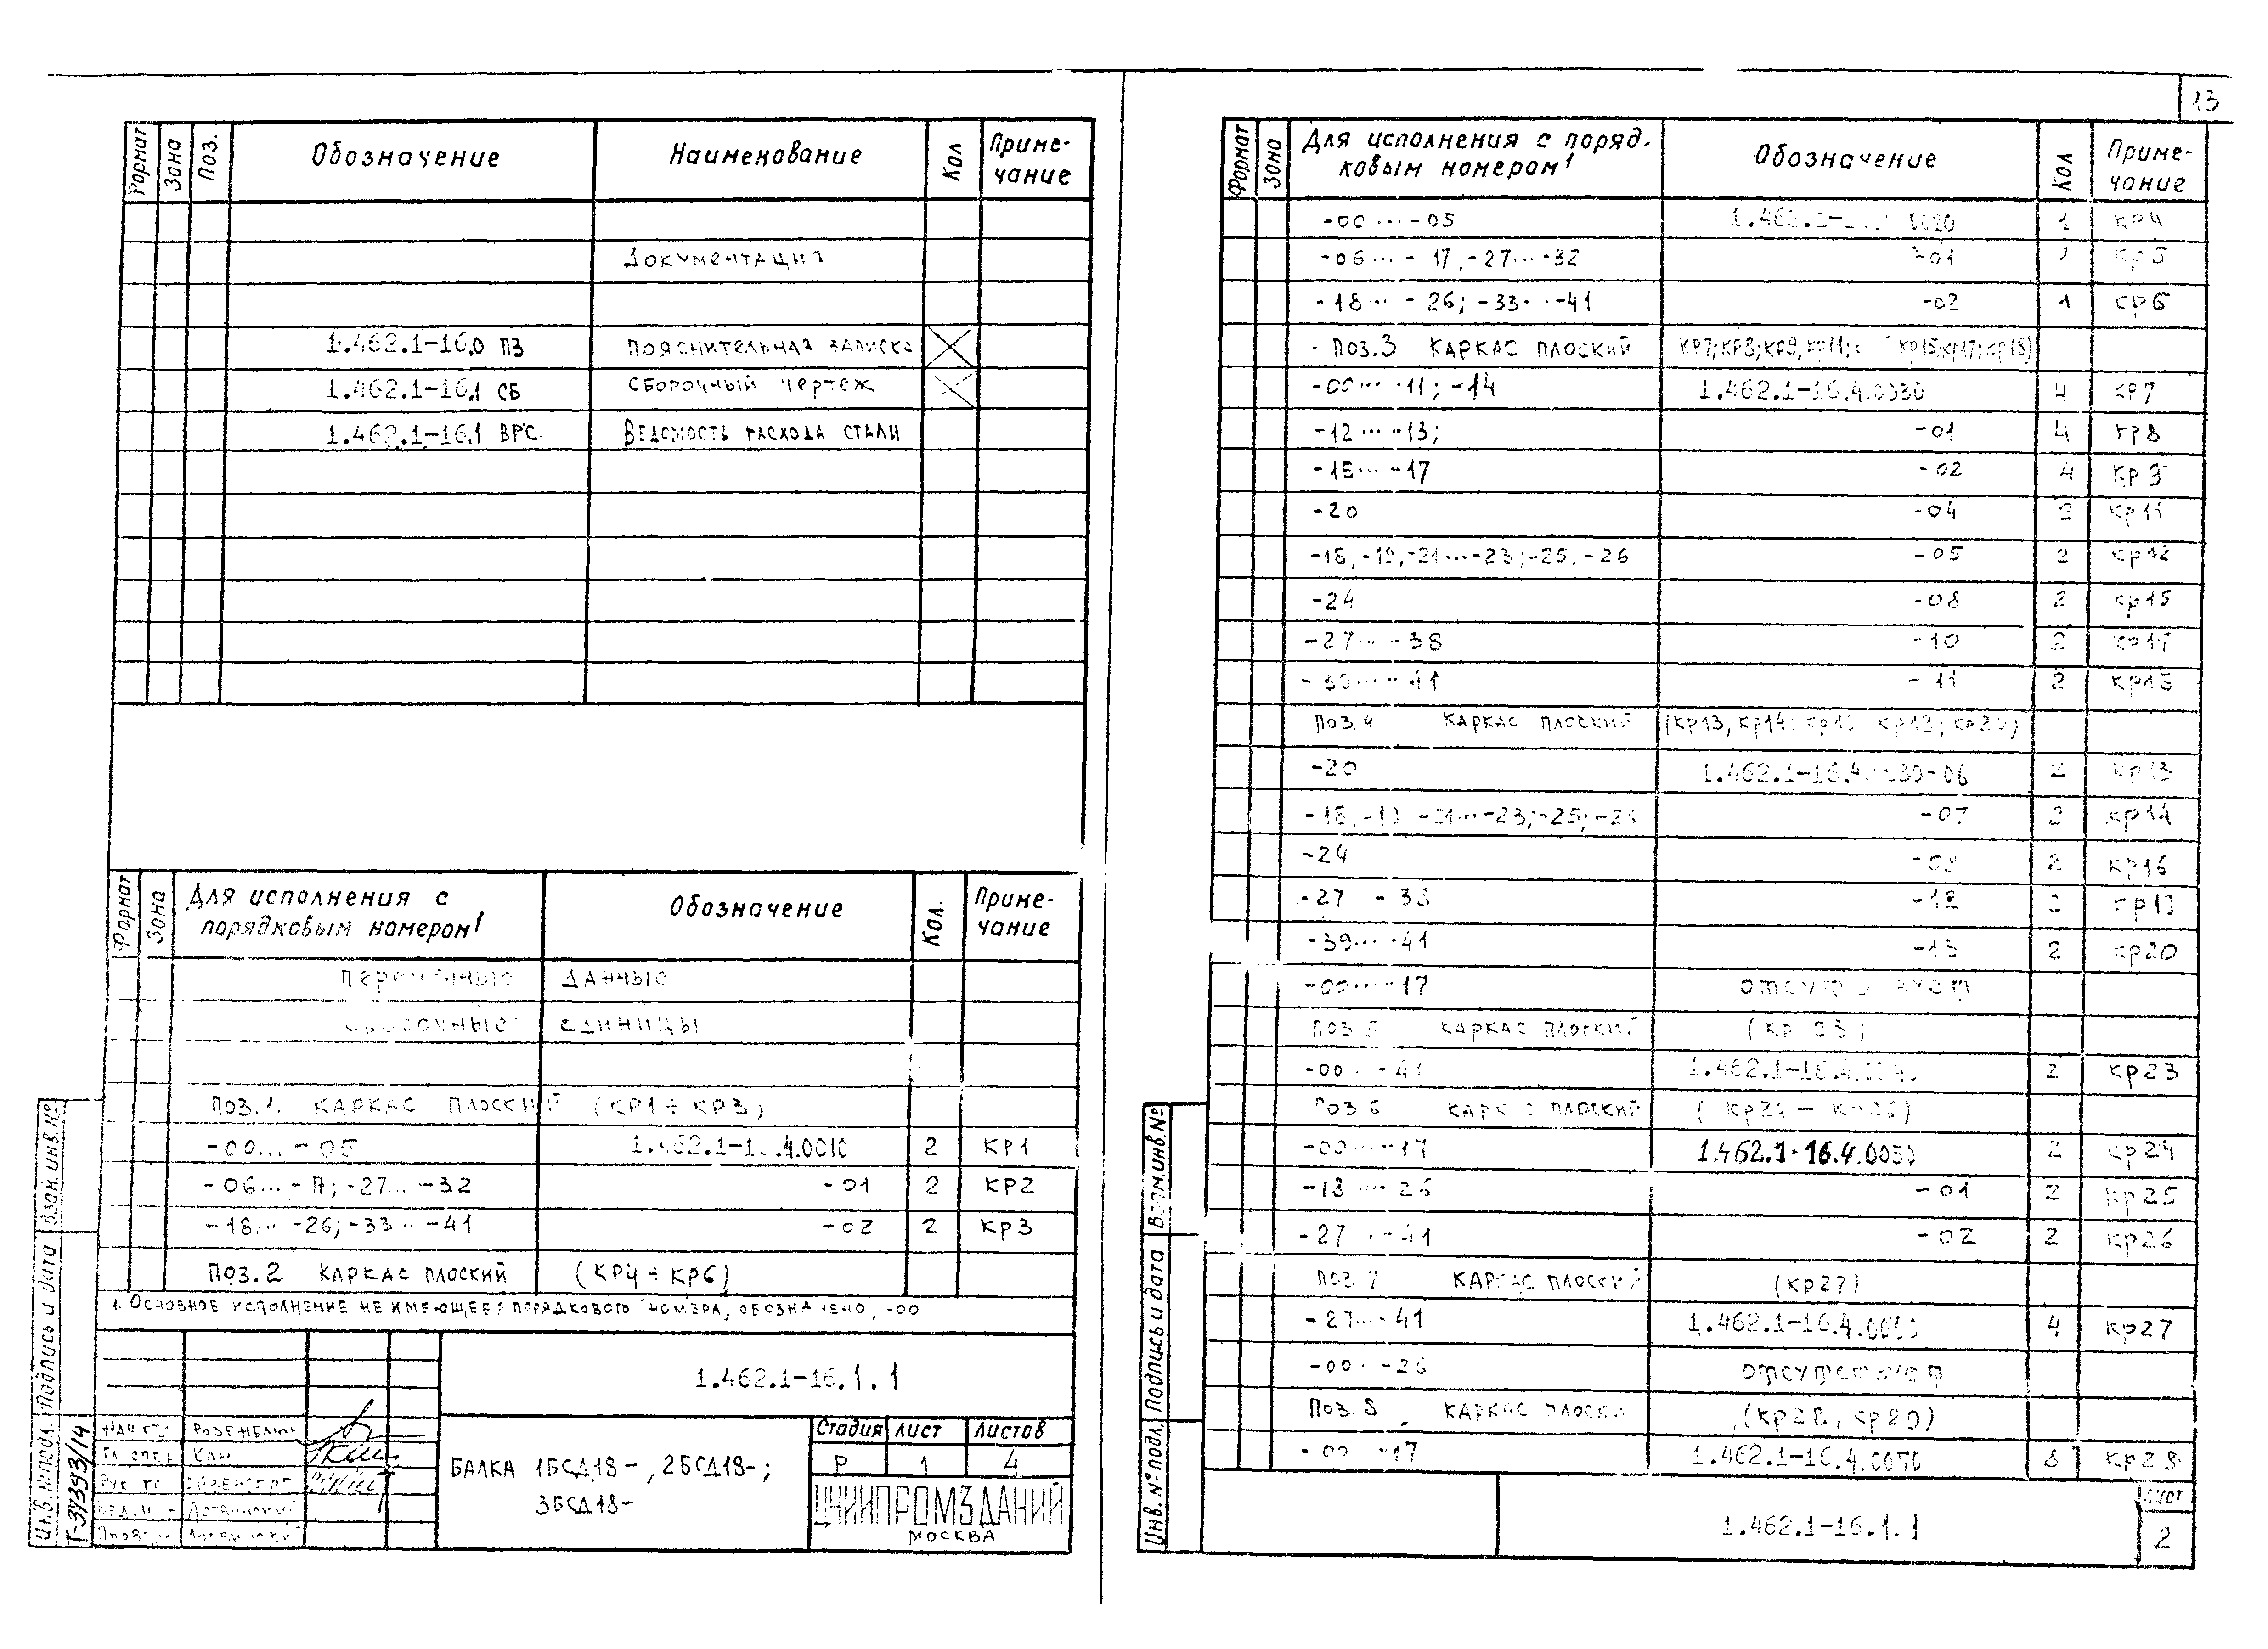 13
Формат Зона Поз. Обозначение Наименование Кол Приме-чание
Документация
1.462.1-16.0 ПЗ Пояснительная записка
1.462.1-16.1 СБ Сборочный чертеж
1.462.1-16.1 ВРС Ведомость расхода стали
Формат Зона Для исполнения с порядковым номером1 Обозначение Кол. Приме-чание
Переменные данные
Сборочные единицы
Поз.1. Каркас плоский (КР1÷КР3)
-00...-05 4.0010 2 КР1
-06...-17; -27...-32 -01 2 КР2
-18...-26; -33...-41 -02 2 КР3
Поз.2 Каркас плоский (КР4÷КР6)
1. Основное исполнение не имеющее порядкового номера, обозначено, -00
1.462.1-16.1.1
Балка 1БСД18-, 2БСД18-;
3БСД18-
Стадия Лист Листов
Р 1 4
ЦНИИПРОМЗДАНИЙ
Москва
Инв. № подл. Подпись и дата Взам. инв. №
Т-3/393/14
Формат Зона Для исполнения с поряд.ковым номером1 Обозначение Кол Приме-чание
-00...-05 1.462.1- 0020 1 КР4
-06...-17, -27...-32 -01 КР5
-18...-26; -33...-41 -02 1 КР6
Поз.3 Каркас плоский КР7; КР8; КР9, КР11; КР15; КР17; КР18)
-00...-11; -14 1.462.1-16.4.0030 4 КР7
-12...-13; -01 4 КР8
-15...-17 -02 4 КР9
-20 -04 2 КР11
-18, -19, -21...-23; -25, -26 -05 2 КР12
-24 -08 2 КР15
-27...-38 -10 2 КР17
-39...-41 -11 2 КР18
Поз.4 Каркас плоский (КР13, КР14; КР20)
-20 1.462.1-16.4.0030-06 2 КР13
-18, -19 -21...-23; -25; -26 -07 2 КР14
-24 2 КР16
-27 -38 -12 2 КР19
-39...-41 -13 2 КР20
-00...-17 отсутствует
Поз.5 Каркас плоский (КР 23)
-00...-41 1.462.1-16.4. 2 КР23
Поз.6 Каркас плоский (КР24 - КР26)
-00...-17 1.462.1-16.4.0050 2 КР24
-18...-26 -01 2 КР25
-27...-41 -02 2 КР26
Поз.7 Каркас плоский (КР27)
-27...-41 1.462.1-16.4. 4 КР27
-00...-26 отсутствует
Поз.8 Каркас (КР28, КР29)
-00...-17 1.462.1-16.4.0070 8 КР28
1.462.1-16.1.1
Лист
2
Инв. № подл. Подпись и дата Взам.инв.№